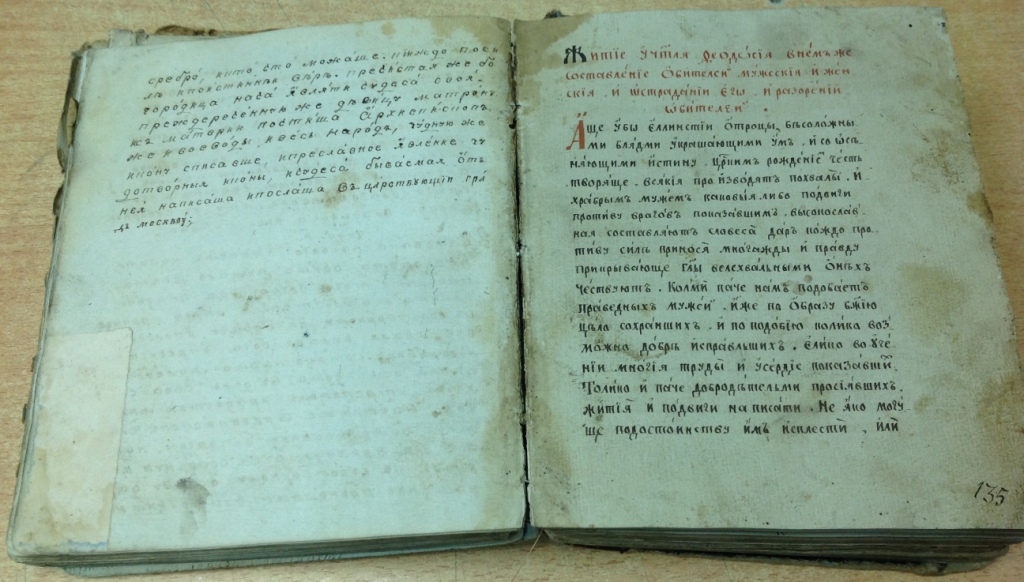 сребро, кито ѐто можаше. ни҆ждо поси
лѣ и поистиннѣ вѣрѣ. превѣстая же бо
городица наса ꙗвляти чудеса своя.
прежд̾еречен̾ную же дѣвицу матрон
къ матери
же и воеводы, и весь народъ, чудную же
икону списавше, и преславное ꙗвленїе. чу
дотворныя иконы, и чудеса бываемая ѿтъ
нея написаша и послаша въ царствующїи гра
дъ москву;
Житїе у҆ч҃тля Ѳеодосїа в немъже
составленїе ѻбителеи мужескїя и҆ жен
скїя, и҆ ѡ҆страданїи є҆гѡ, и҆ разоренїй
ѡ҆бителеи.
А҆ще у҆бѡ є҆ллинстїи ѻ҆троцы, бѣсолажны
ми блядми украшающими у҆мъ, и҆ со
ѩ҆ющими и҆стину. рождениє честь
творяще. всякїя производятъ похвалы, и҆
храбрымъ мужемъ каковыя либо подвиги
противу враговъ показавшимъ, высокослав
ная составляютъ словеса даръ кождо про
тиву силѣ приносѧ многажды и҆ правду
прикрывающе гл҃ы велехвальными ѻ҆нѣхъ
чествуютъ. Колмѝ паче намъ подобаетъ
праведныхъ мужєй, и҆же по ѻ҆бразу бж҃їю
цѣло сохраншихъ, и҆ по подобїю колико воз
можно добрѣ и҆справльшихъ. є҆лико во уче
нїи многїя труды и҆ у҆сердїе показавшїй
Толико и҆ паче добродѣтельми просїявшихъ,
житїя и҆ подвиги написати. Не ꙗ҆ко могу
ще подостоинству и҆мъ и҆сплестѝ, и҆лѝ
135